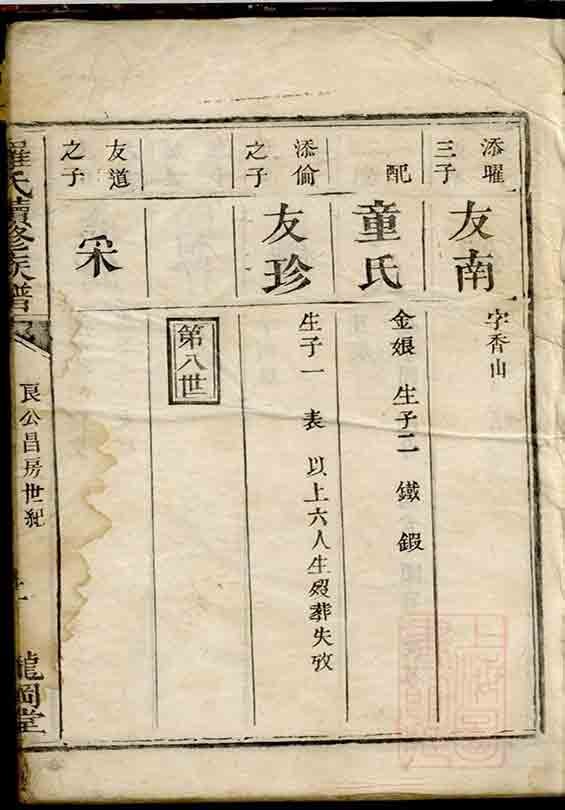 添曜
三子
友南
字香山
配
童氏
金娘 生子二 鐵 鍜
添倫
之子
友珍
生子一 表 以上六人生歿葬失攷
第八世
友道
之子
釆
羅氏續修族譜
良公昌房世紀
龍岡堂